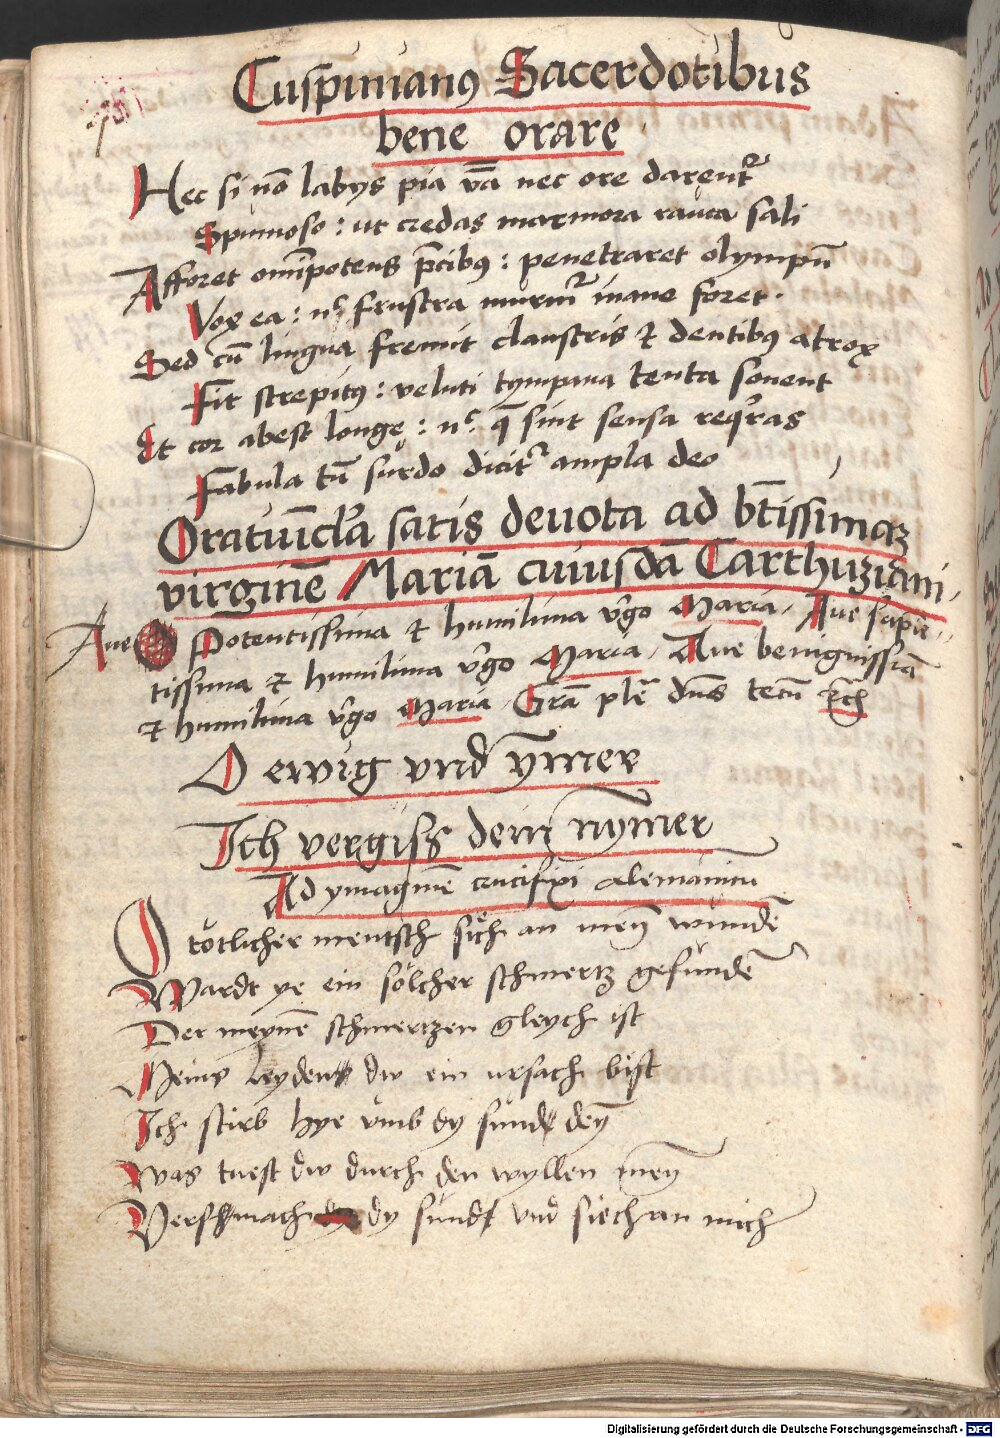 Cuspinianꝰ Sacerdotibus
bene orare
Hec si nō labys pia vā nec ore darent᷑
Spumoso : ut credas marmora rauca sali
Afforet omīpotens p̄cibꝰ : penetraret olympū
Vox ea : nͨ frustra murmᷣ inane foret ·
Sed cū lingua fremit claustris et dentibꝰ atrox
Fit strepitꝰ : veluti tympana tenta sonent
Et cor abest longę : nͨ q̄ sint sensa reqͥras
Fabula tū surdo dicit᷑ ampla deo
Oratiūcl'a satis deuota ad bt̄issimaȝ
virginē Mariā cuiusdā Carthuziāni ·
Aue Potentissima et humilima v'go Maria · Aue sapiē-
tissima et humilima v'go Maria · Aue benignissīa
et humilima v'go Maria · Gr̄a plē dn̄s tecū
O ewig vnd ymer
Ich vergiss dein nymer
Ad ymaginē crucifixi alemanicū
O tötlicher mentsch sich an meȳ wundē
Wardt ye ein sölcher schmertz gefundē
Der meynē schmertzen gleych ist
Meins leydens dw ein ursach bist
Ich stirb hye vmb dy sund deȳ
Was tuest dw durch den wyllen meȳ
Verschmach dy sund vnd siech an mich
Digitalisierung gefördert durch die Deutsche Forschungsgemeinschaft - DFG